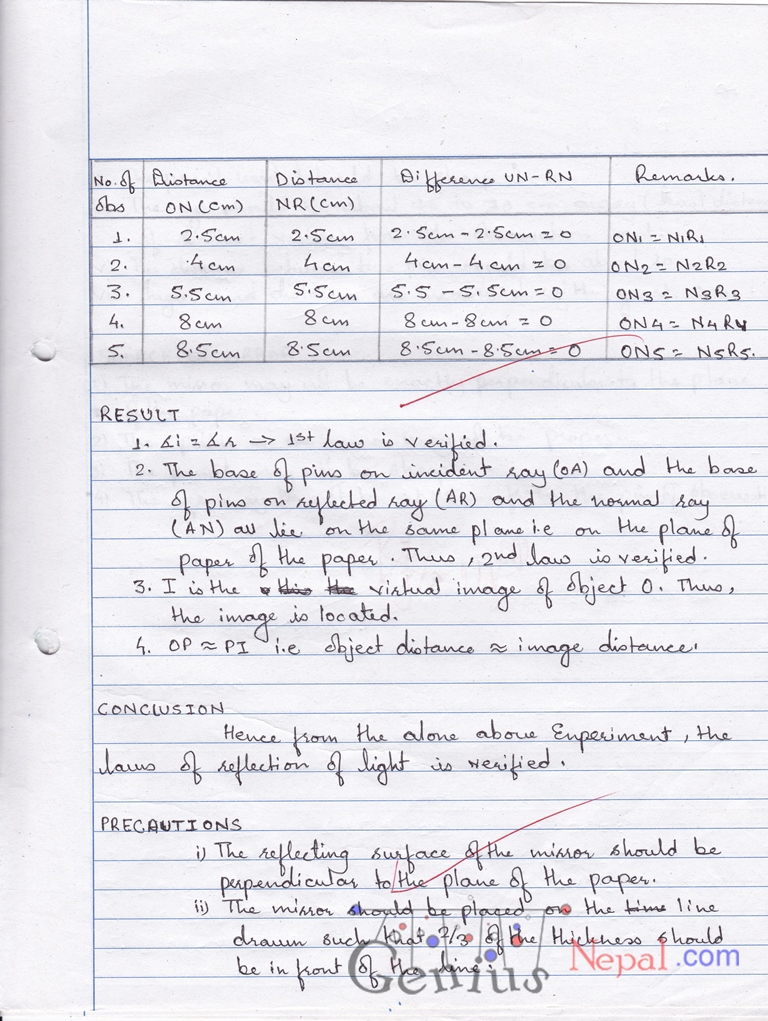 No. of obs | Distance ON (cm) | Distance NR (cm) | Difference UN-RN | Remarks.
1. | 2.5cm | 2.5cm | 2.5cm - 2.5cm = 0 | ON1 = N1R1
2. | 4cm | 4cm | 4cm - 4cm = 0 | ON2 = N2R2
3. | 5.5cm | 5.5cm | 5.5 - 5.5cm = 0 | ON3 = N3R3
4. | 8cm | 8cm | 8cm - 8cm = 0 | ON4 = N4R4
5. | 8.5cm | 8.5cm | 8.5cm - 8.5cm = 0 | ON5 = N5R5.
RESULT
1. ∠i = ∠r → 1st law is verified.
2. The base of pins on incident ray (OA) and the base
of pins on reflected ray (AR) and the normal ray
(AN) all lie on the same plane i.e on the plane of
paper of the paper. Thus, 2nd law is verified.
3. I is the this the virtual image of object O. Thus,
the image is located.
4. OP ≈ PI i.e object distance ≈ image distance.
CONCLUSION
Hence from the alone above Experiment, the
laws of reflection of light is verified.
PRECAUTIONS
i) The reflecting surface of the mirror should be
perpendicular to the plane of the paper.
ii) The mirror should be placed on the time line
drawn such that 2/3 of the thickness should
be in front of the line.
Genius Nepal.com